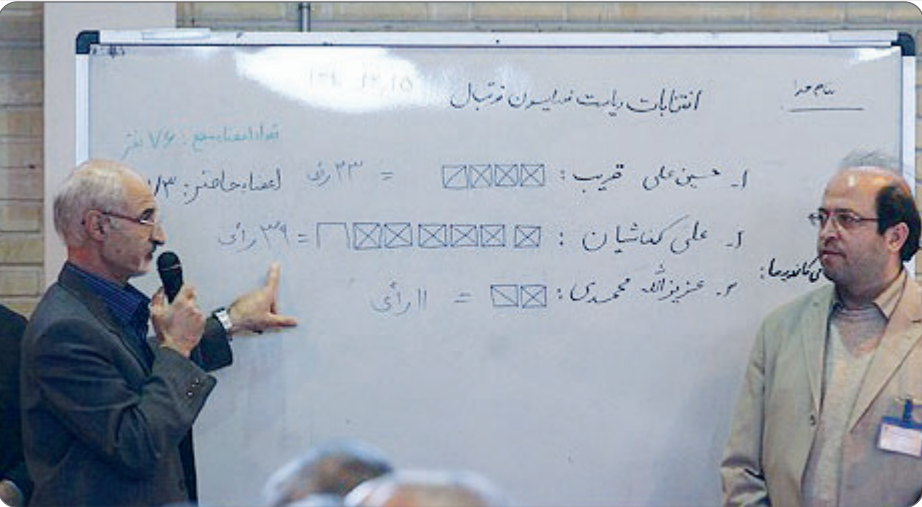 بنام خدا
انتخابات ریاست فدراسیون فوتبال
تعداد اعضاء مجمع: ۷۶ نفر
اعضاء حاضر: ۷۳
۱- حسین علی قریب: = ۲۳ رأی
۲- علی کفاشیان: = ۳۹ رأی
۳- عزیزالله محمدی: = ۱۱ رأی